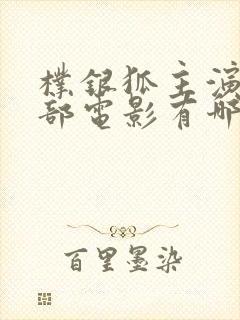 樸銀狐主演
部電影有哪
百里墨染